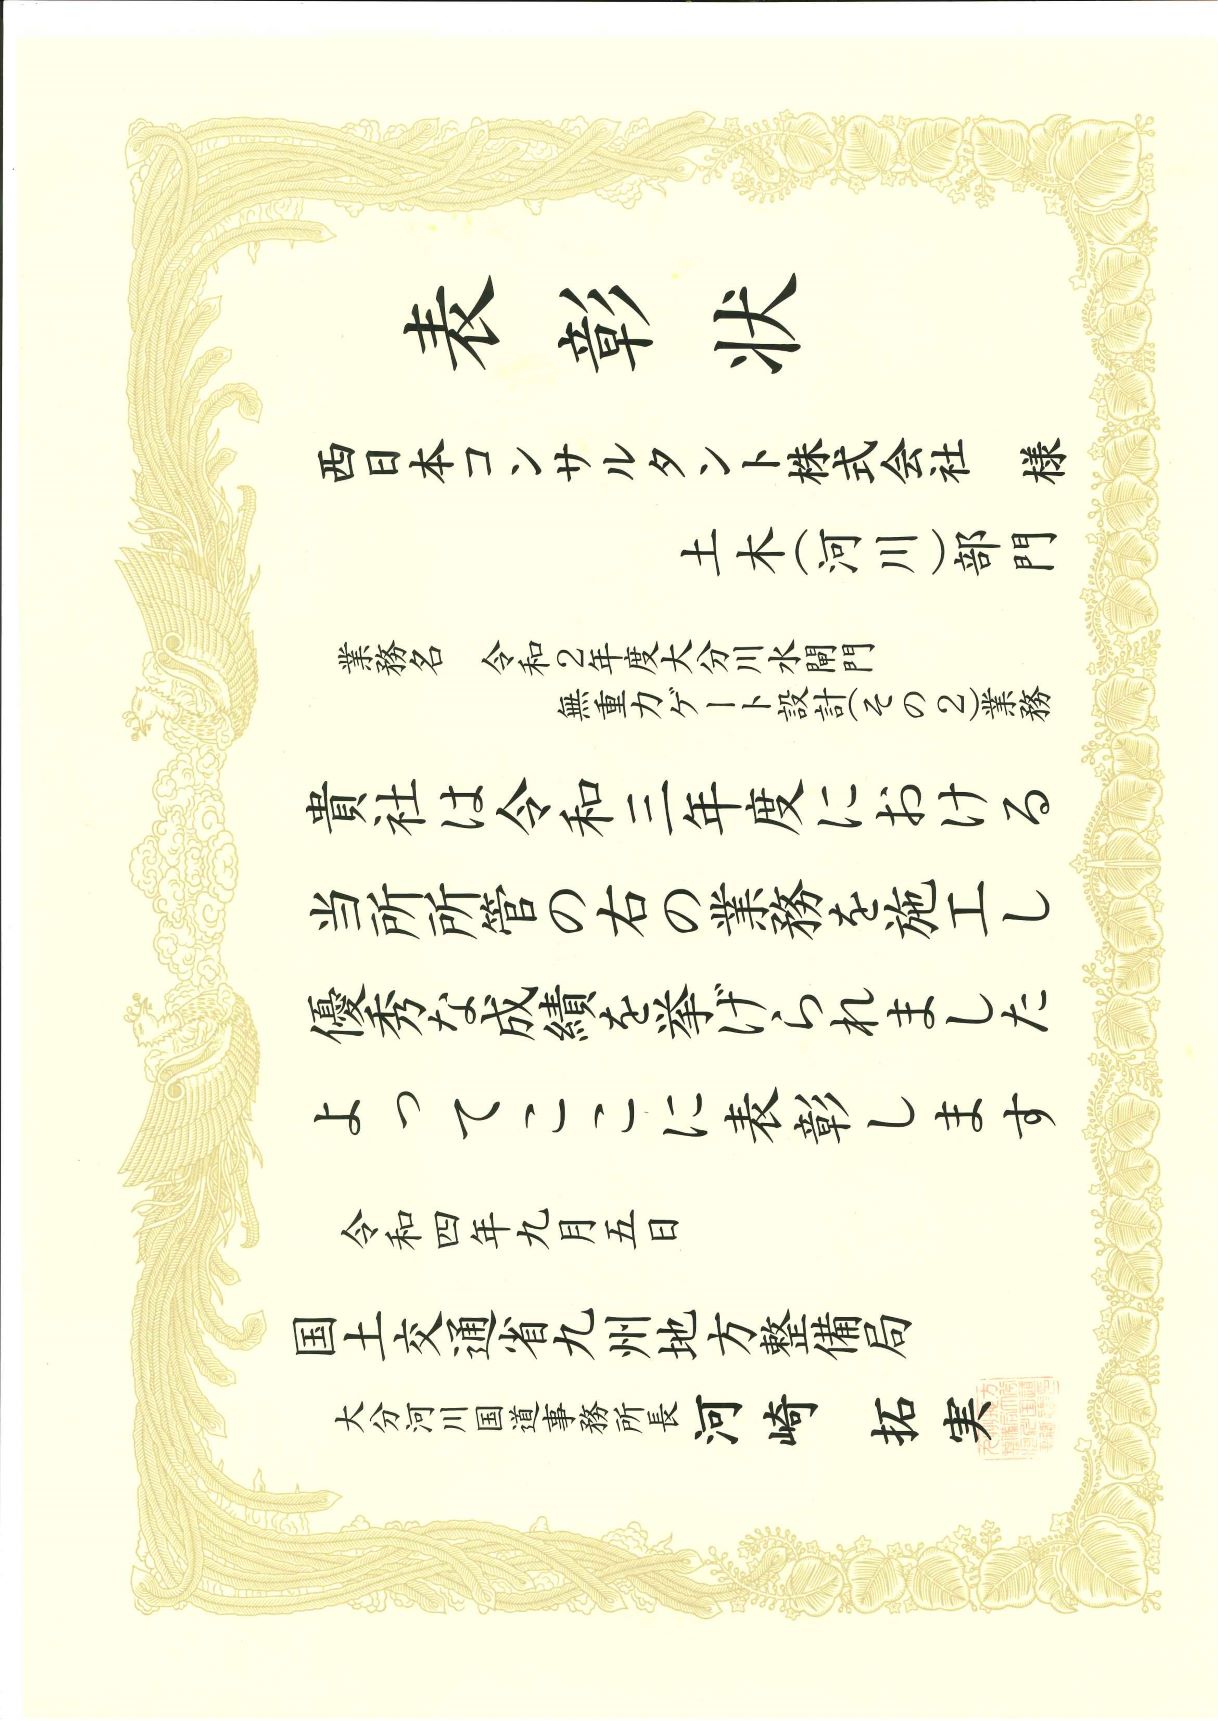 表彰状
西日本コンサルタント株式会社 様
土木(河川)部門
業務名 令和2年度大分川水閘門
無重力ゲート設計(その2)業務
貴社は令和三年度における
当所所管の右の業務を施工し
優秀な成績を挙げられました
よってここに表彰します
令和四年九月五日
国土交通省九州地方整備局
大分河川国道事務所長 河崎 拓実